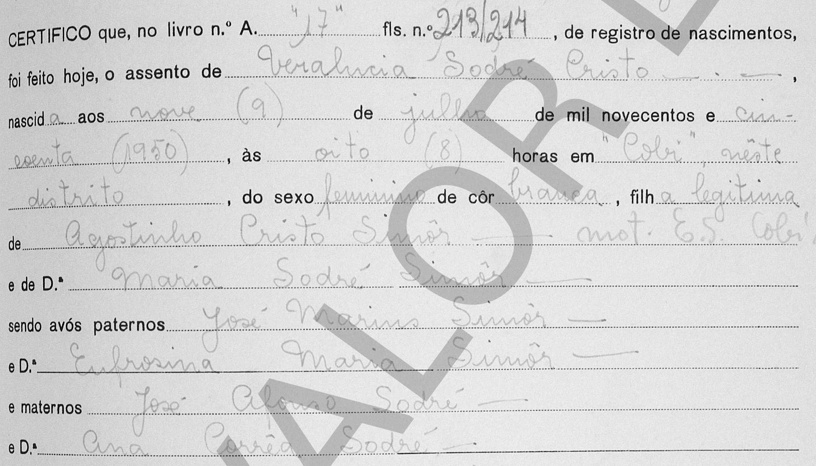 CERTIFICO que, no livro n.º A. "17" fls. n.º 213/214, de registro de nascimentos,
foi feito hoje, o assento de Veralucia Sodré Cristo — . —,
nascida aos nove (9) de julho de mil novecentos e cin-
coenta (1950), às oito (8) horas em "Cobi", nêste
distrito, do sexo feminino de côr branca, filha legitima
de Agostinho Cristo Simôr — mot. E.S. Cobi
e de D.ª Maria Sodré Simôr —
sendo avós paternos José Marins Simôr —
e D.ª Eufrosina Maria Simôr —
e maternos José Afonso Sodré —
e D.ª Ana Corrêa Sodré —
VALOR